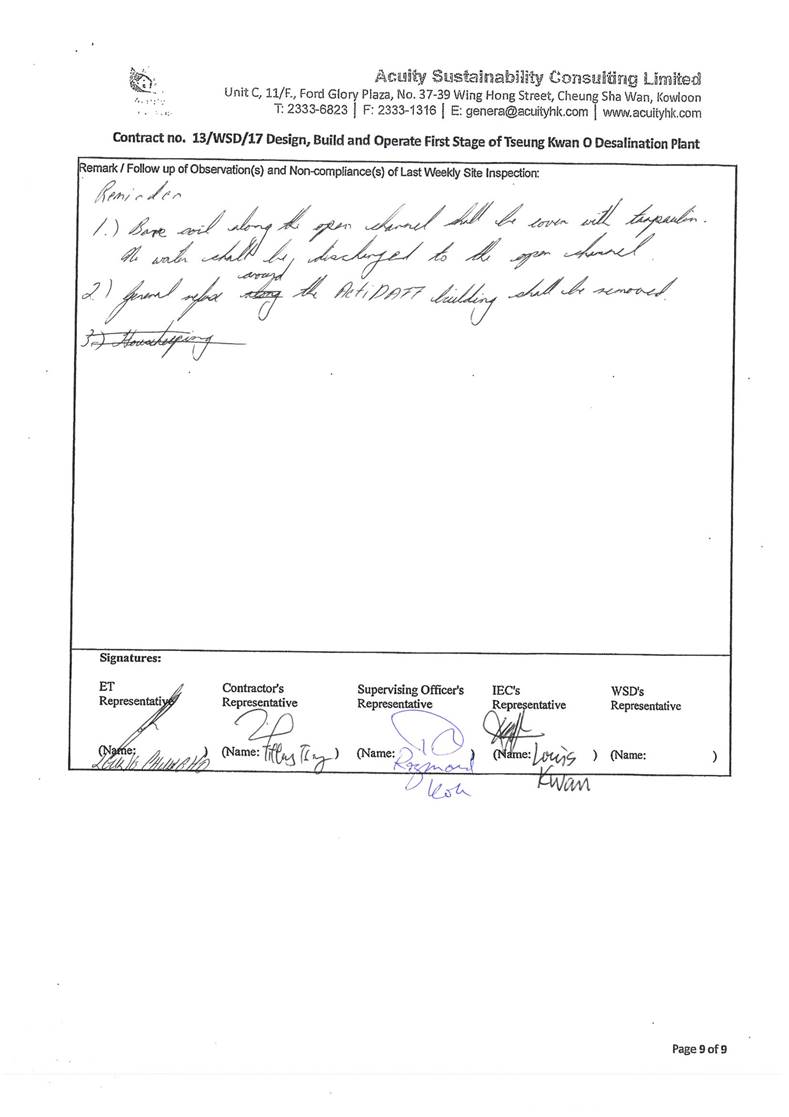 Acuity Sustainability Consulting Limited
Unit C, 11/F., Ford Glory Plaza, No. 37-39 Wing Hong Street, Cheung Sha Wan, Kowloon
T: 2333-6823 | F: 2333-1316 | E: genera@acuityhk.com | www.acuityhk.com
Contract no. 13/WSD/17 Design, Build and Operate First Stage of Tseung Kwan O Desalination Plant
Remark / Follow up of Observation(s) and Non-compliance(s) of Last Weekly Site Inspection:
Reminder
1.) Bare soil along the open channel shall be cover with trapaulin.
No water shall be discharged to the open channel.
around
2.) General refuse along the ActiDAFF building shall be removed.
3.) Housekeeping
Signatures:
ET Contractor's Supervising Officer's IEC's WSD's
Representative Representative Representative Representative Representative
(Name: ) (Name: ) (Name: Raymond ) (Name: Louis ) (Name: )
Koh Kwan
Page 9 of 9